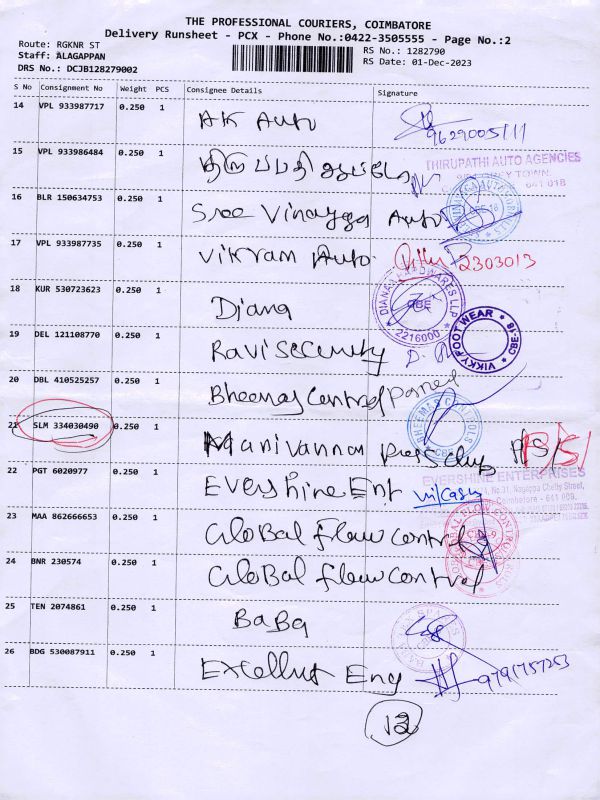 THE PROFESSIONAL COURIERS, COIMBATORE
Delivery Runsheet - PCX - Phone No.:0422-3505555 - Page No.:2
Route: RGKNR ST
RS No.: 1282790
Staff: ALAGAPPAN
RS Date: 01-Dec-2023
DRS No.: DCJB128279002
S No Consignment No Weight PCS Consignee Details Signature
14 VPL 933987717 0.250 1
AK Auto
9629005111
15 VPL 933986484 0.250 1
THIRUPATHI AUTO AGENCIES
திருப்பதி ஆட்டோ
TOWN,
641 018
16 BLR 150634753 0.250 1
Sree Vinayga Auto
17 VPL 933987735 0.250 1
Vikram Auto 2303013
18 KUR 530723623 0.250 1
DIANA HARDWARES LLP
CBE
2216000
Diana
19 DEL 121108770 0.250 1
VIKKY FOOT WEAR
CBE-18
Ravi Security
20 DBL 410525257 0.250 1
Bheemas Control
BHEEMAS CONTROLS
21 SLM 334030490 0.250 1
Manivannan
22 PGT 6020977 0.250 1
EVERSHINE ENTERPRISES
No.31, Nagappa Chetty Street,
Coimbatore - 641 009.
Evershine Ent
23 MAA 862666653 0.250 1
Global flow control
GLOBAL FLOW CONTROLS
24 BNR 230574 0.250 1
Global flow control
25 TEN 2074861 0.250 1
Baba
26 BDG 530087911 0.250 1
Excellent Eng 9791757253
12